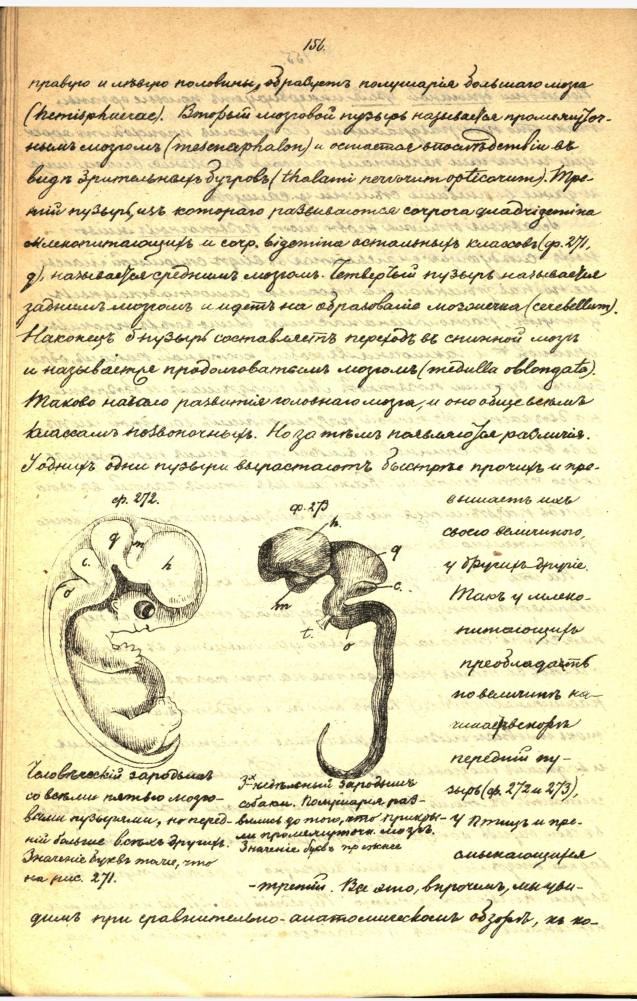 156.
правую и лѣвую половины, образуетъ полушарія большаго мозга
(hemisphaerae). Второй мозговой пузырь называется промежуточ-
нымъ мозгомъ (mesencephalon) и остается впослѣдствіи въ
видѣ зрительныхъ бугровъ (thalami nervorum opticorum). Тре-
тій пузырь, изъ котораго развиваются corpora quadrigemina
млекопитающихъ и corp. bigemina остальныхъ классовъ (ф. 271,
q), называется среднимъ мозгомъ. Четвертый пузырь называется
заднимъ мозгомъ и идетъ на образованіе мозжечка (cerebellum).
Наконецъ 5 пузырь составляетъ переходъ въ спинной мозгъ
и называется продолговатымъ мозгомъ (medulla oblongata).
Таково начало развитія головнаго мозга, и оно обще всѣмъ
классамъ позвоночныхъ. Но за тѣмъ появляются различія.
У однихъ одни пузыри вырастаютъ быстрѣе прочихъ и пре-
вышаетъ ихъ
своею величиною,
у другихъ другіе.
Такъ у млеко-
питающихъ
преобладаетъ
по величинѣ на-
чинаетъ вскорѣ
передній пу-
зырь (ф. 272 и 273),
у птицъ и пре-
смыкающихся
- третій. Все это, впрочемъ, мы уви-
димъ при сравнительно-анатомическомъ обзорѣ, къ ко-
ф. 272.
q
m
c.
h
o
Человѣческій зародышъ
со всѣми пятью мозго-
выми пузырями, но перед-
ній больше всѣхъ другихъ.
Значеніе буквъ тоже, что
на рис. 271.
ф. 273
h.
q
c.
m
t.
o
3х недѣльный зародышъ
собаки. Полушарія раз-
вились до того, что прикры-
ли промежуточн. мозгъ.
Значеніе буквъ прежнее